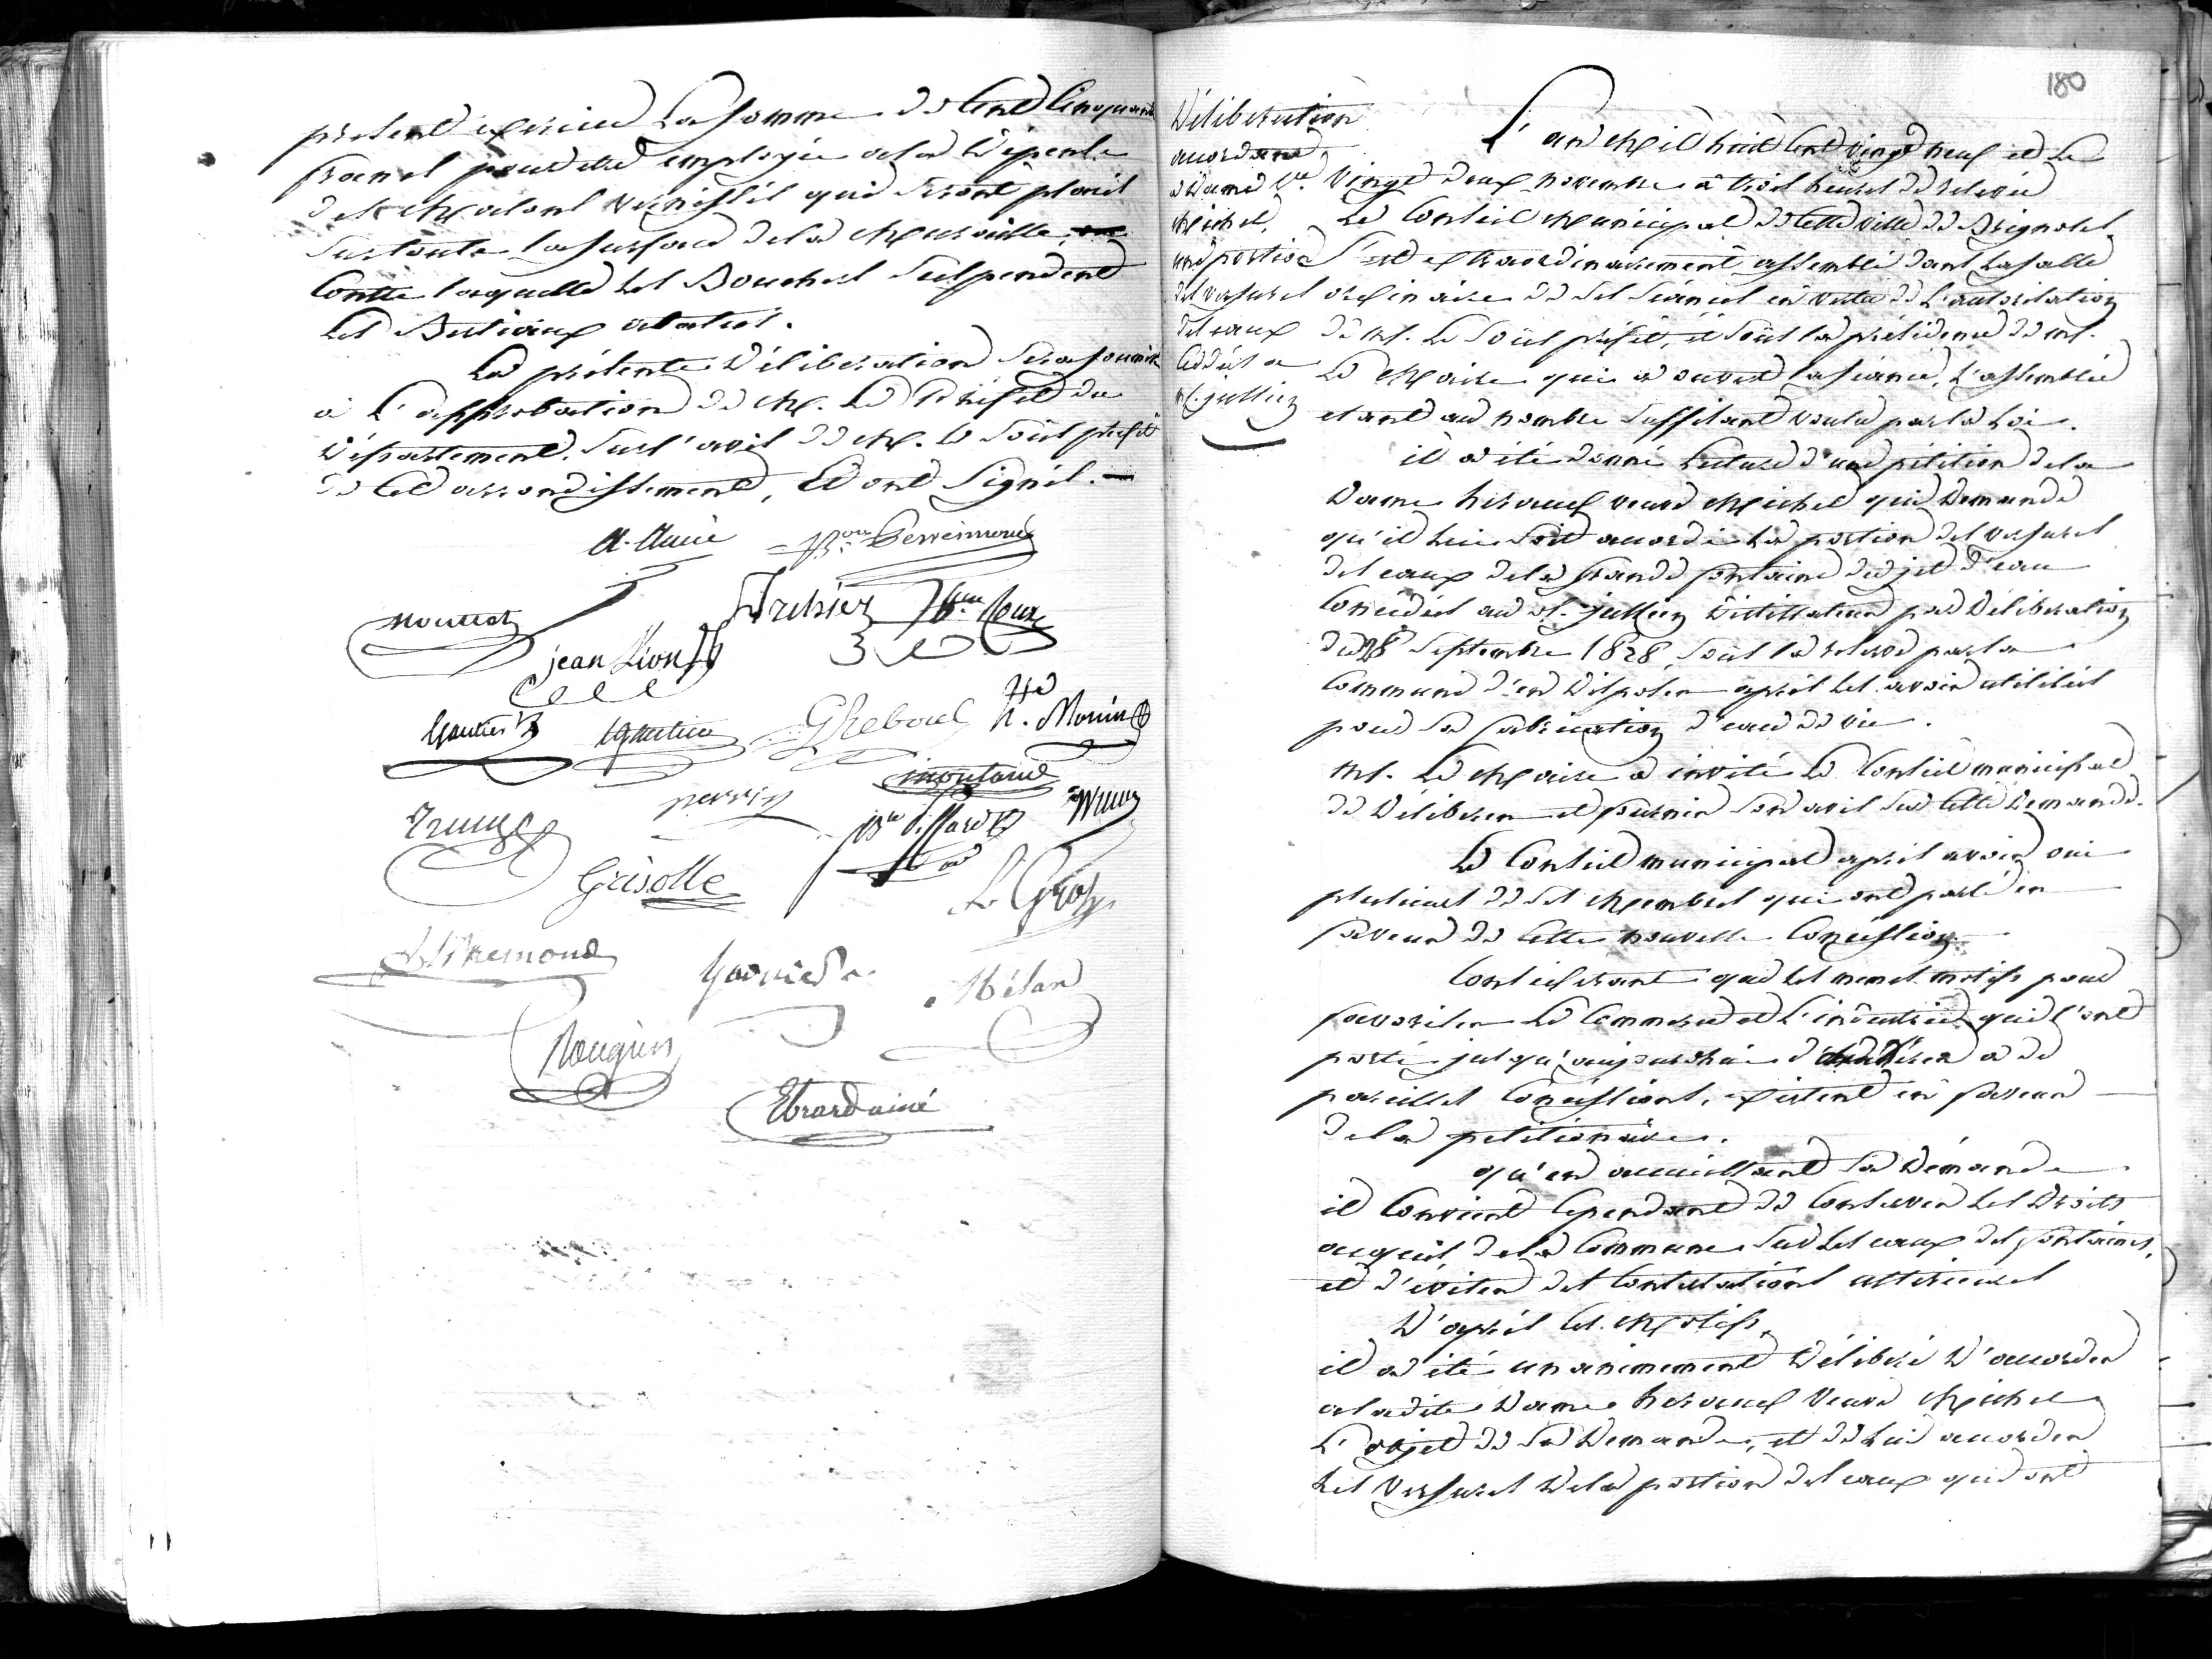 présent exercice la somme de Cent Cinquante
francs pour etre employée a la Dépense
des Madons vernissés qui seront placés
sur toute la surface de la Muraille
Contre laquelle les Bouchers suspendent
les Bestiaux abatus.
La présente Délibération sera soumise
à l'approbation de M. le Préfet du
Département, sur l'avis de M. le sous préfet
de cet arrondissement, Et ont signés.
Jean Lion
Gautier
G Reboul
h. Monin
perrin
Grisolle
L Gros
Garnier
Mélan
Rougiers
Ebrard ainé
180
Délibération
accordant
à Dame Ve.
Michel,
une portion
des versures
des eaux
Cédées a
M. jullien
L'an Mil huit Cent vingt neuf et le
vingt deux novembre à trois heures de relevée
le Conseil Municipal de Cette ville de Brignoles
s'est extraordinairement assemblé dans la salle
ordinaire de ses séances en vertu de l'autorisation
de M. le sous préfet, et sous la présidence de M.
le Maire qui a ouvert la séance, l'assemblée
etant au nombre suffisant voulu par la Loi.
il a été donné lecture d'une pétition de la
Dame heraud veuve Michel qui Demande
qu'il lui soit accordé la portion des versures
des eaux de la grande fontaine du jet d'eau
Concédées au Sr. jullien Distillateur par Délibération
du 28 Septembre 1828, sous la reserve par la
Commune d'en Disposer après les avoir utilisées
pour sa fabrication d'eau de vie.
M. le Maire a invité le Conseil municipal
de Déliberer et fournir son avis sur Cette Demande.
Le Conseil municipal après avoir oui
plusieurs de ses Membres qui ont parlé en
faveur de Cette nouvelle Concession.
Considerant que les memes motifs pour
favoriser le Commerce et l'industrie qui l'ont
porté jusqu'aujourd'hui d'adhérer a de
pareilles Concessions, existent en faveur
de la petitionaire.
qu'en accueillant sa Démande
il Convient Cependant de Conserver les Droits
acquis de la Commune sur les eaux des fontaines,
et d'eviter des Contestations ulterieures
D'après Ces Motifs,
il a été unanimement Déliberé D'accorder
a ladite Dame heraud Veuve Michel
L'objet de sa Demande, et de lui accorder
les Versures de la portion des eaux qui ont